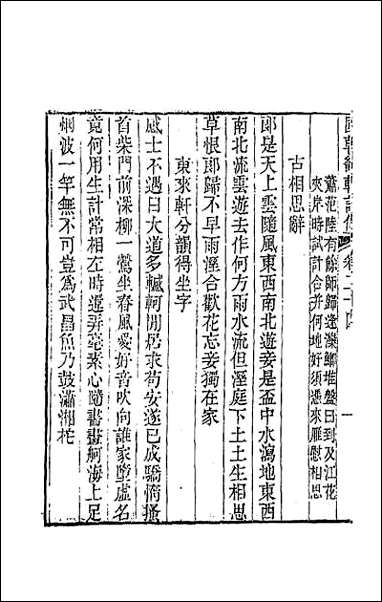 國朝畿輔詩傳 卷二十四 一
蕭范陸有餘師歸逢螺堆盤日到及江花
夾岸時試計合并何地好須憑來雁慰相思
古相思辭
郎是天上雲隨風東西南北遊妾是盃中水瀉地東西
南北流雲遊去作何方雨水流但溼庭下土土生相思
草恨郎歸不早雨溼合歡花忘妾獨在家
東來軒分韻得坐字
感士不遇曰大道多轗軻閒居求苟安遂已成驕惰搔
首柴門前深柳一鶯坐春風愛好音吹向誰家墮虛名
竟何用生計常相左時還弄毫素心隨書畫舸海上足
烟波一竿無不可豈爲武昌魚乃鼓瀟湘柁